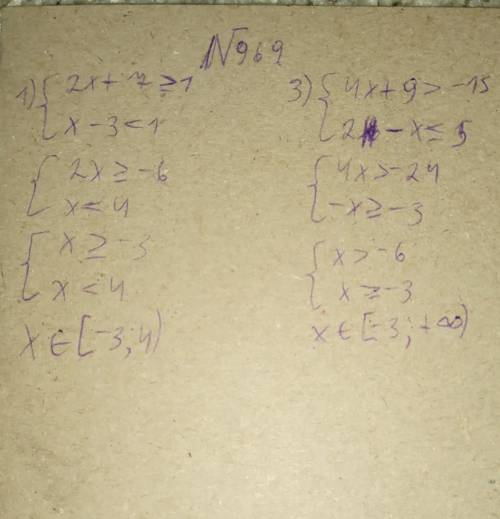 N969
1) { 2x + 7 ≥ 1
x - 3 < 1
{ 2x ≥ -6
x < 4
{ x ≥ -3
x < 4
x ∈ [-3; 4)
3) { 4x + 9 > -15
2 - x ≤ 5
{ 4x > -24
-x ≥ -3
{ x > -6
x ≥ -3
x ∈ [-3; +∞)